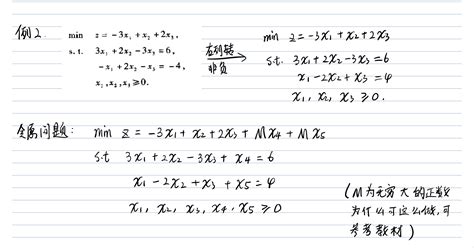 例2.
min z = -3x₁ + x₂ + 2x₃,
s.t. 3x₁ + 2x₂ - 3x₃ = 6,
-x₁ + 2x₂ - x₃ = -4,
x₁, x₂, x₃ ≥ 0.
右列转
非负
min z = -3x₁ + x₂ + 2x₃
s.t. 3x₁ + 2x₂ - 3x₃ = 6
x₁ - 2x₂ + x₃ = 4
x₁, x₂, x₃ ≥ 0.
min z = -3x₁ + x₂ + 2x₃ + Mx₄ + Mx₅
s.t 3x₁ + 2x₂ - 3x₃ + x₄ = 6
x₁ - 2x₂ + x₃ + x₅ = 4
x₁, x₂, x₃, x₄, x₅ ≥ 0
(M为无穷大的正数
为什么可这么做, 可
参考教材)